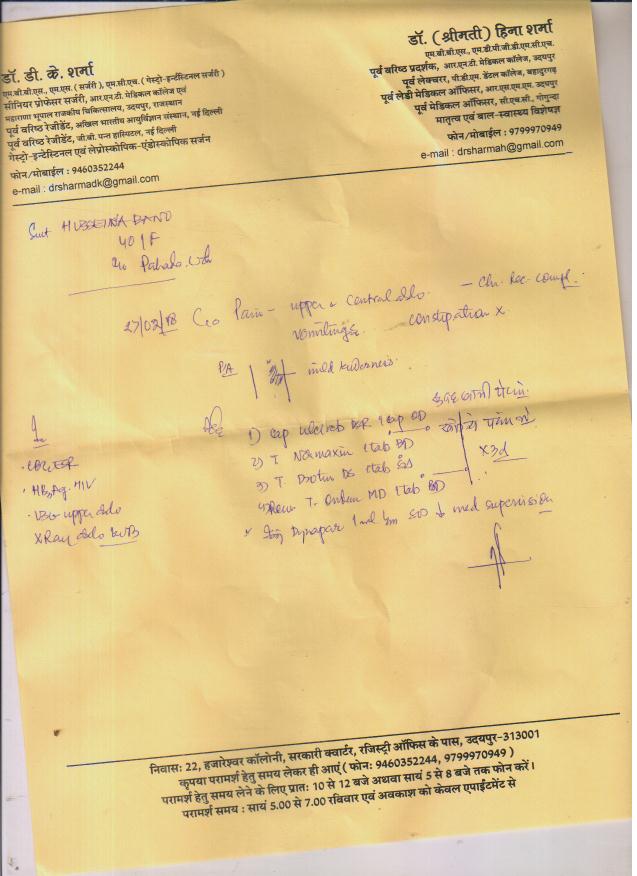 डॉ. डी. के. शर्मा
एम.बी.बी.एस., एम.एस. ( सर्जरी ), एम.सी.एच. ( गेस्ट्रो-इन्टेस्टिनल सर्जरी )
सीनियर प्रोफेसर सर्जरी, आर.एन.टी. मेडिकल कॉलेज एवं
महाराणा भूपाल राजकीय चिकित्सालय, उदयपुर, राजस्थान
पूर्व वरिष्ठ रेजीडेंट, अखिल भारतीय आयुर्विज्ञान संस्थान, नई दिल्ली
पूर्व वरिष्ठ रेजीडेंट, जी.बी. पन्त हास्पिटल, नई दिल्ली
गेस्ट्रो-इन्टेस्टिनल एवं लेप्रोस्कोपिक-एंडोस्कोपिक सर्जन
फोन/मोबाईल : 9460352244
e-mail : drsharmadk@gmail.com
डॉ. (श्रीमती) हिना शर्मा
एम.बी.बी.एस., एम.डी.पी.जी.डी.एम.सी.एच.
पूर्व वरिष्ठ प्रदर्शक, आर.एन.टी. मेडिकल कॉलेज, उदयपुर
पूर्व लेक्चरर, पी.डी.एम. डेंटल कॉलेज, बहादुरगढ़
पूर्व लेडी मेडिकल ऑफिसर, आर.एस.एम.एम. उदयपुर
पूर्व मेडिकल ऑफिसर, सी.एच.सी., गोगुन्दा
मातृत्व एवं बाल-स्वास्थ्य विशेषज्ञ
फोन/मोबाईल : 9799970949
e-mail : drsharmah@gmail.com
Smt HUSSEINA BANO
40/F
27/02/18 C/o Pain - upper & central abdo. - Ch. Rec. compl.
vomitings constipation X
P/A mild tenderness
1) cap DSR 1 cap OD
2) T. Normaxin 1 tab BD
3) T. Drotin DS 1 tab
T. MD 1 tab BD
X3d
Inj Dynapar 1 ml im med supervision
CBC, ESR
HBsAg. HIV
USG upper abdo
X Ray abdo KUB
निवास: 22, हजारेश्वर कॉलोनी, सरकारी क्वार्टर, रजिस्ट्री ऑफिस के पास, उदयपुर-313001
कृपया परामर्श हेतु समय लेकर ही आएं ( फोन: 9460352244, 9799970949 )
परामर्श हेतु समय लेने के लिए प्रात: 10 से 12 बजे अथवा सायं 5 से 8 बजे तक फोन करें।
परामर्श समय : सायं 5.00 से 7.00 रविवार एवं अवकाश को केवल एपाईंटमेंट से